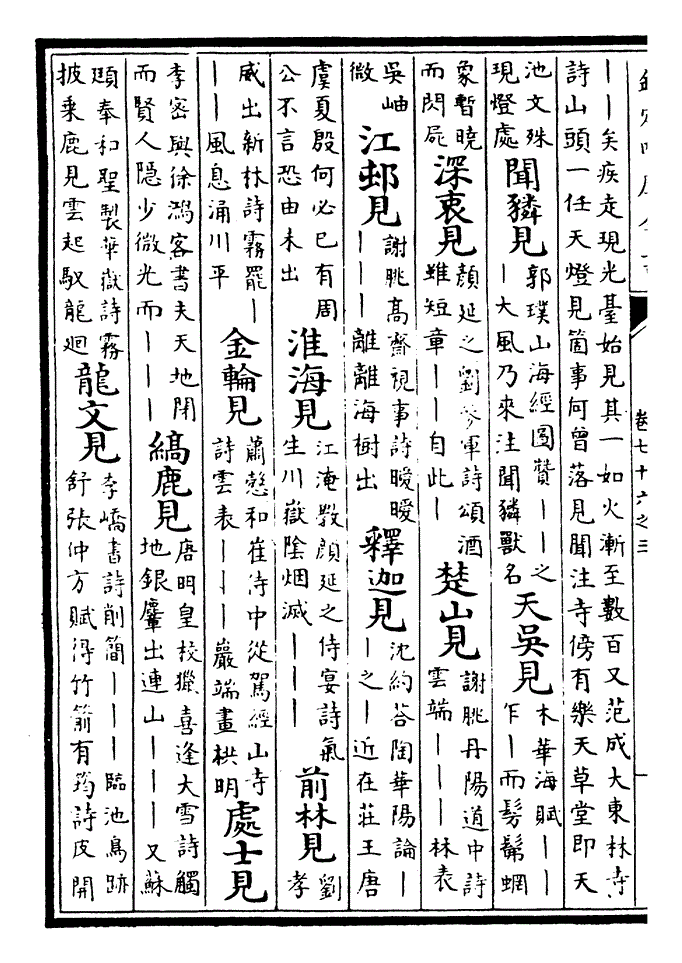 卷七十六之三
一
｜｜矣疾走現光臺始見其一如火漸至數百又范成大東林寺
詩山頭一任天燈見箇事何曾落見聞注寺傍有樂天草堂即天
池文殊
現燈處
聞獜見
郭璞山海經圖贊｜｜之
｜大風乃來注聞獜獸名
天吳見
木華海賦｜｜
乍｜而髣髴蝄
象暫曉
而閃屍
深衷見
顏延之劉參軍詩頌酒
雖短章｜｜自此｜
楚山見
謝朓丹陽道中詩
雲端｜｜｜林表
吳岫
微
江邨見
謝朓高齋視事詩曖曖
｜｜｜離離海樹出
釋迦見
沈約荅陶華陽論｜
｜之｜近在莊王唐
虞夏殷何必已有周
公不言恐由未出
淮海見
江淹斅顏延之侍宴詩氣
生川嶽陰烟滅｜｜｜
前林見
劉
孝
威出新林詩霧罷｜
｜｜風息涌川平
金輪見
蕭慤和崔侍中從駕經山寺
詩雲表｜｜｜巖端畫栱明
處士見
李密與徐鴻客書夫天地閉
而賢人隱少微光而｜｜｜
縞鹿見
唐明皇校獵喜逢大雪詩觸
地銀麞出連山｜｜｜又蘇
頲奉和聖製華嶽詩霧
披乘鹿見雲起馭龍迴
龍文見
李嶠書詩削簡｜｜｜臨池鳥跡
舒張仲方賦得竹箭有筠詩皮開